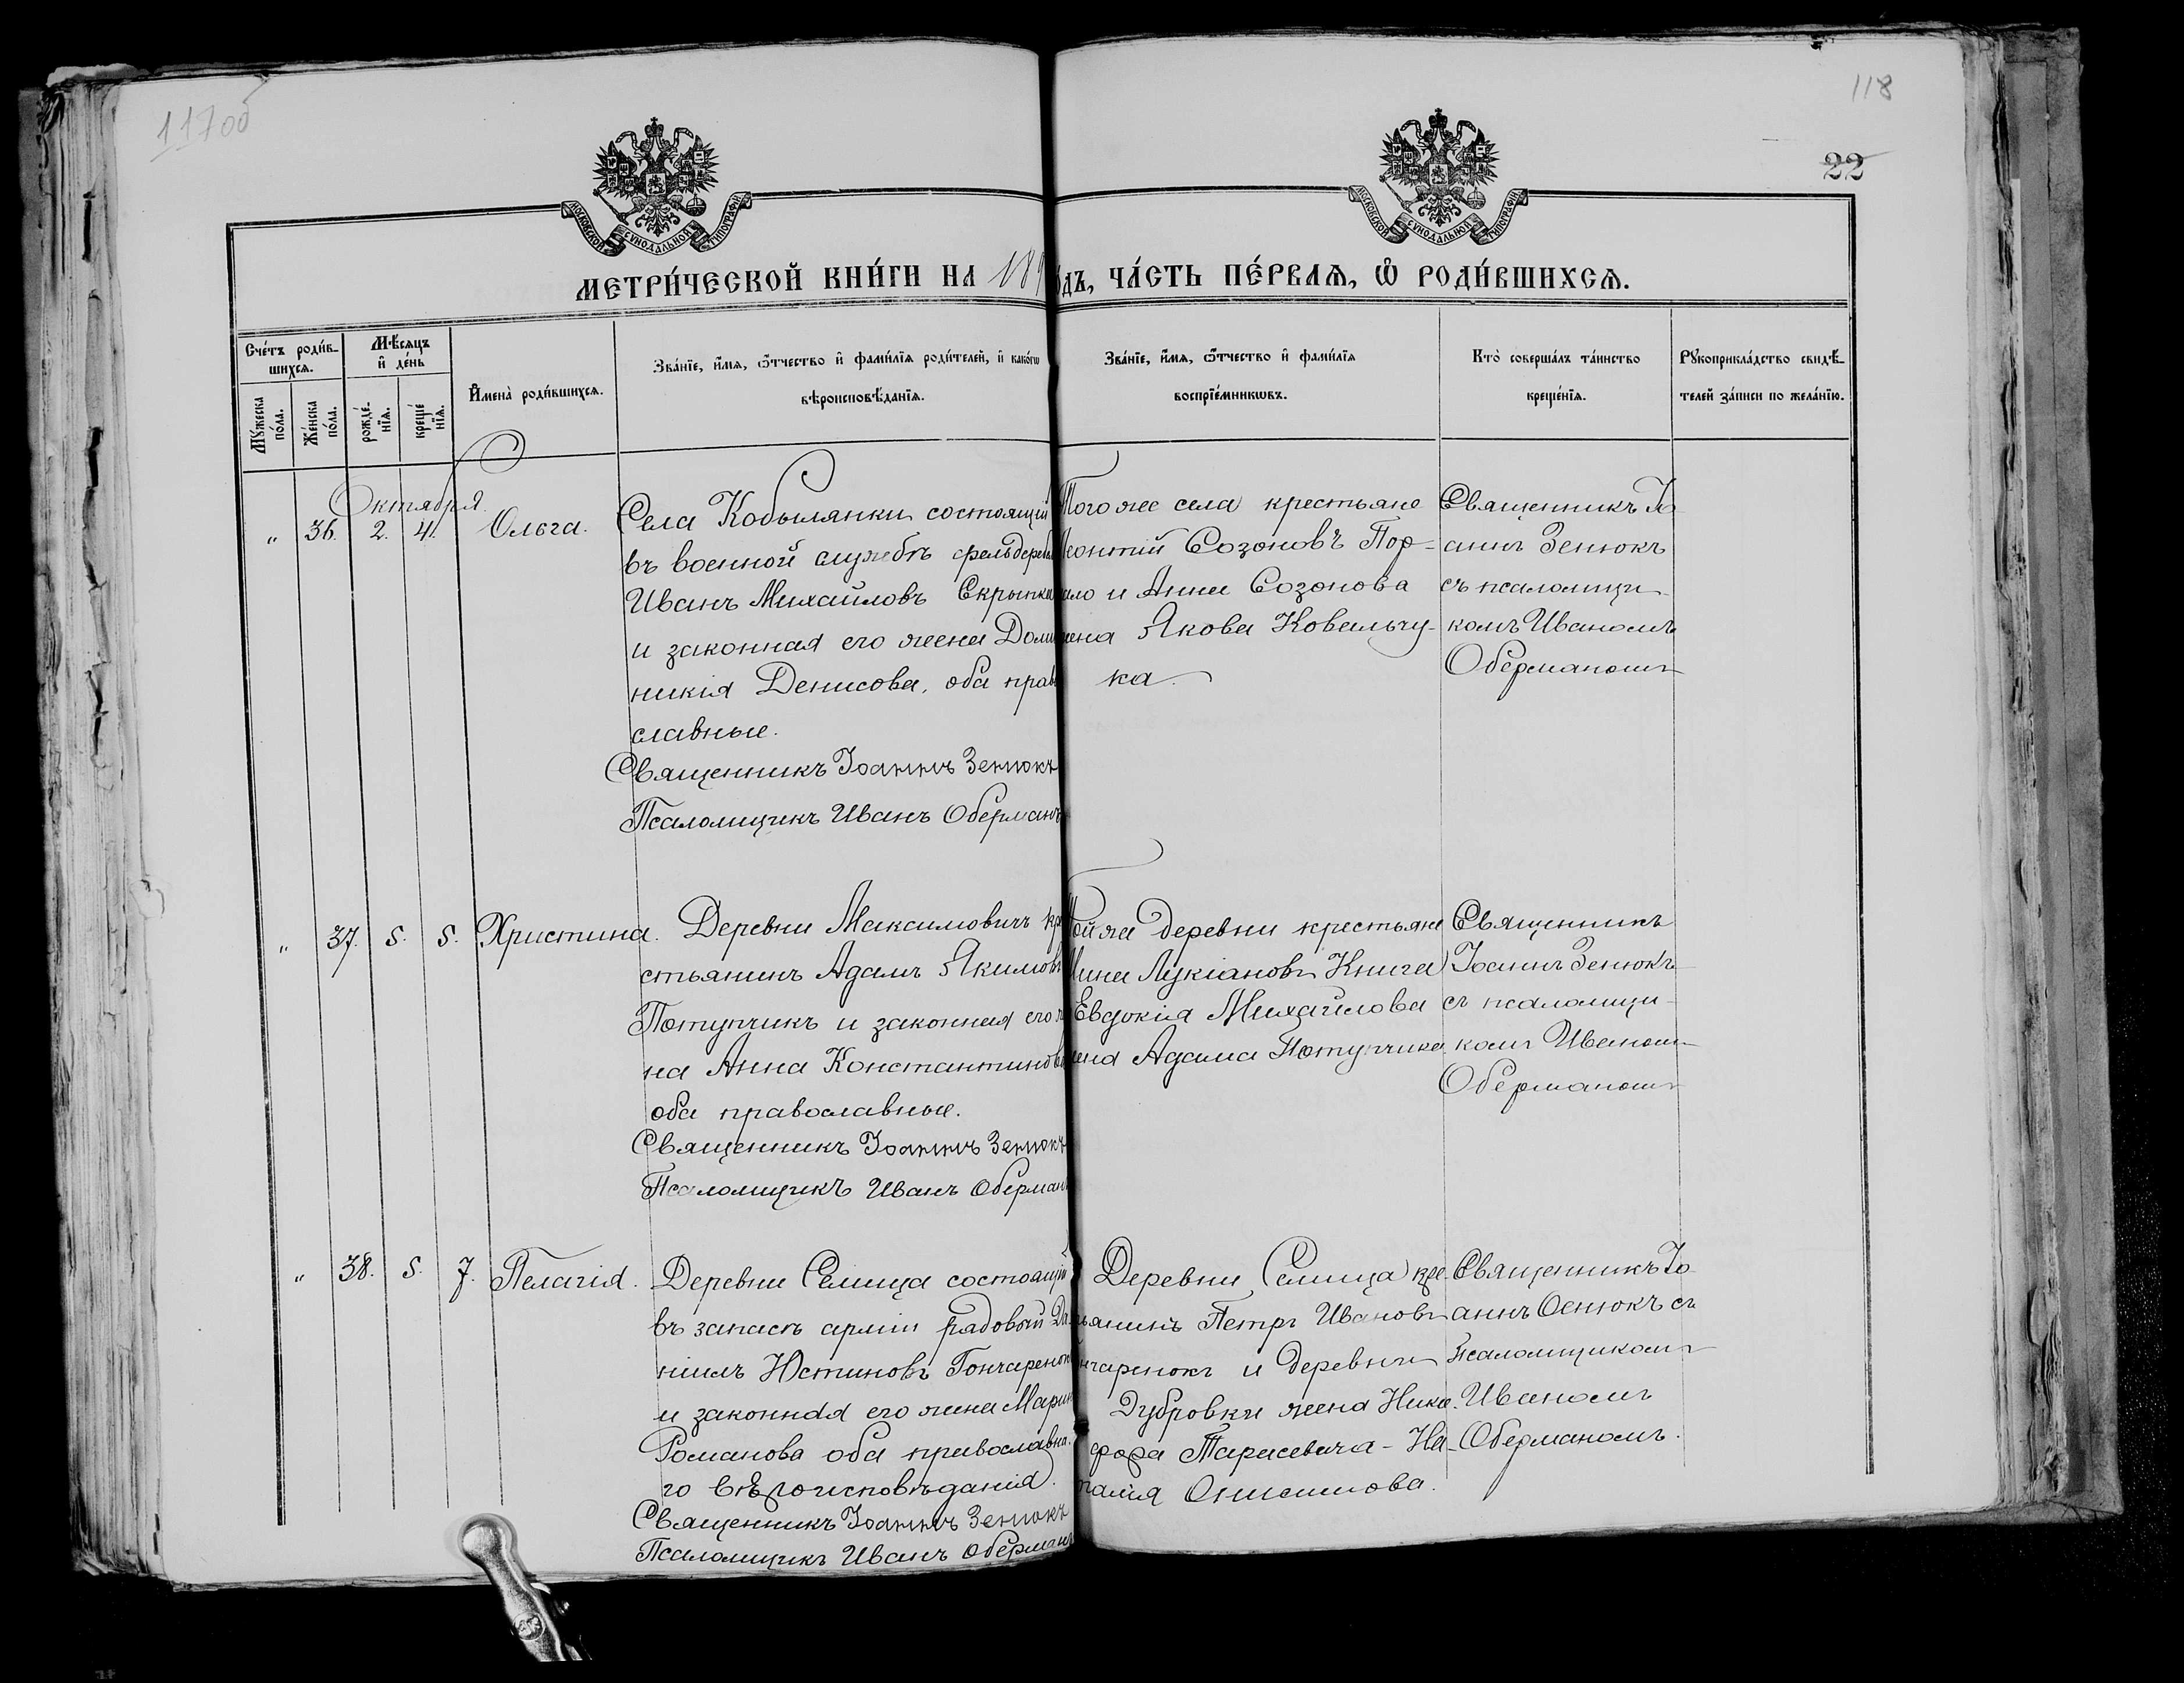 117об
118
22
МОСКОВСКОЙ СѴНОДАЛЬНОЙ ТИПОГРАФІИ
МОСКОВСКОЙ СѴНОДАЛЬНОЙ ТИПОГРАФІИ
МЕТРИ́ЧЕСКОЙ КНИ́ГИ НА 189
ОДЪ, ЧА́СТЬ ПЕ́РВАЯ, Ѿ РОДИ́ВШИХСЯ.
Сче́тъ роди́в-
шихся.
Мꙋ́жеска по́ла.
Же́нска по́ла.
Мѣ́сяцъ и де́нь
рожде́-нїя.
креще́нїя.
И҆мена̀ роди́вшихся.
Зва́нїе, и҆́мя, ѻ҆́тчество и҆ фами́лїя роди́телей, и҆ како́гѡ
вѣроисповѣ́данїя.
Зва́нїе, и҆́мя, ѻ҆́тчество и҆ фами́лїя
воспрїе́мникѡвъ.
Кто̀ соверша́лъ та́инство
креще́нїя.
Рꙋкоприкла́дство свидѣ́-
телей за́писи по жела́нїю.
Октября.
" 36. 2. 4. Ольга.
Села Кобылянки состоящій
въ военной службѣ фельдфеб
Иванъ Михайловъ Скрынни
и законная его жена Доми
никія Денисова, оба прав
славные.
Священникъ Іоаннъ Зенюкъ
Псаломщикъ Иванъ Оберманъ
Того же села крестьяне
Леонтій Созоновъ Пор-
ило и Анна Созонова
жена Якова Ковальчу-
ка.
Священникъ Іо
аннъ Зенюкъ
съ псаломщи-
комъ Иваномъ
Оберманомъ
" 37. 5. 5. Христина.
Деревни Максимовичъ кре
стьянинъ Адамъ Якимовъ
Потупчикъ и законная его ж
на Анна Константинова
оба православные.
Священникъ Іоаннъ Зенюкъ
Псаломщикъ Иванъ Оберманъ
Той же деревни крестьяне
Мина Лукіановъ Книга
Евдокія Михайлова
жена Адама Потупчика.
Священникъ
Іоаннъ Зенюкъ
съ псаломщи-
комъ Иваномъ
Оберманомъ
" 38. 5. 7. Пелагія.
Деревни Селища состоящій
въ запасѣ арміи рядовой Да-
ніилъ Юстиновъ Гончаренокъ
и законная его жена Марин
Романова оба православна-
го вѣроисповѣданія.
Священникъ Іоаннъ Зенюкъ
Псаломщикъ Иванъ Оберманъ
Деревни Селища кре-
ьянинъ Петръ Ивановъ
нчаренокъ и деревни
Дубровки жена Ники-
фора Тарасевича - На-
талія Онисимова.
Священникъ Іо-
аннъ Зенюкъ съ
псаломщикомъ
Иваномъ
Оберманомъ.